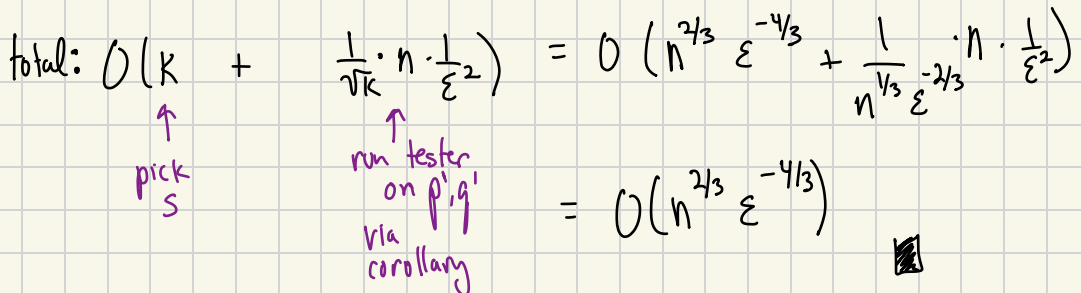 total: O(k + 1/√k · n · 1/ε²) = O(n^{2/3} ε^{-4/3} + 1/(n^{1/3} ε^{-2/3}) · n · 1/ε²)
↑ ↑
pick run tester
S on p', q'
via
corollary
= O(n^{2/3} ε^{-4/3})